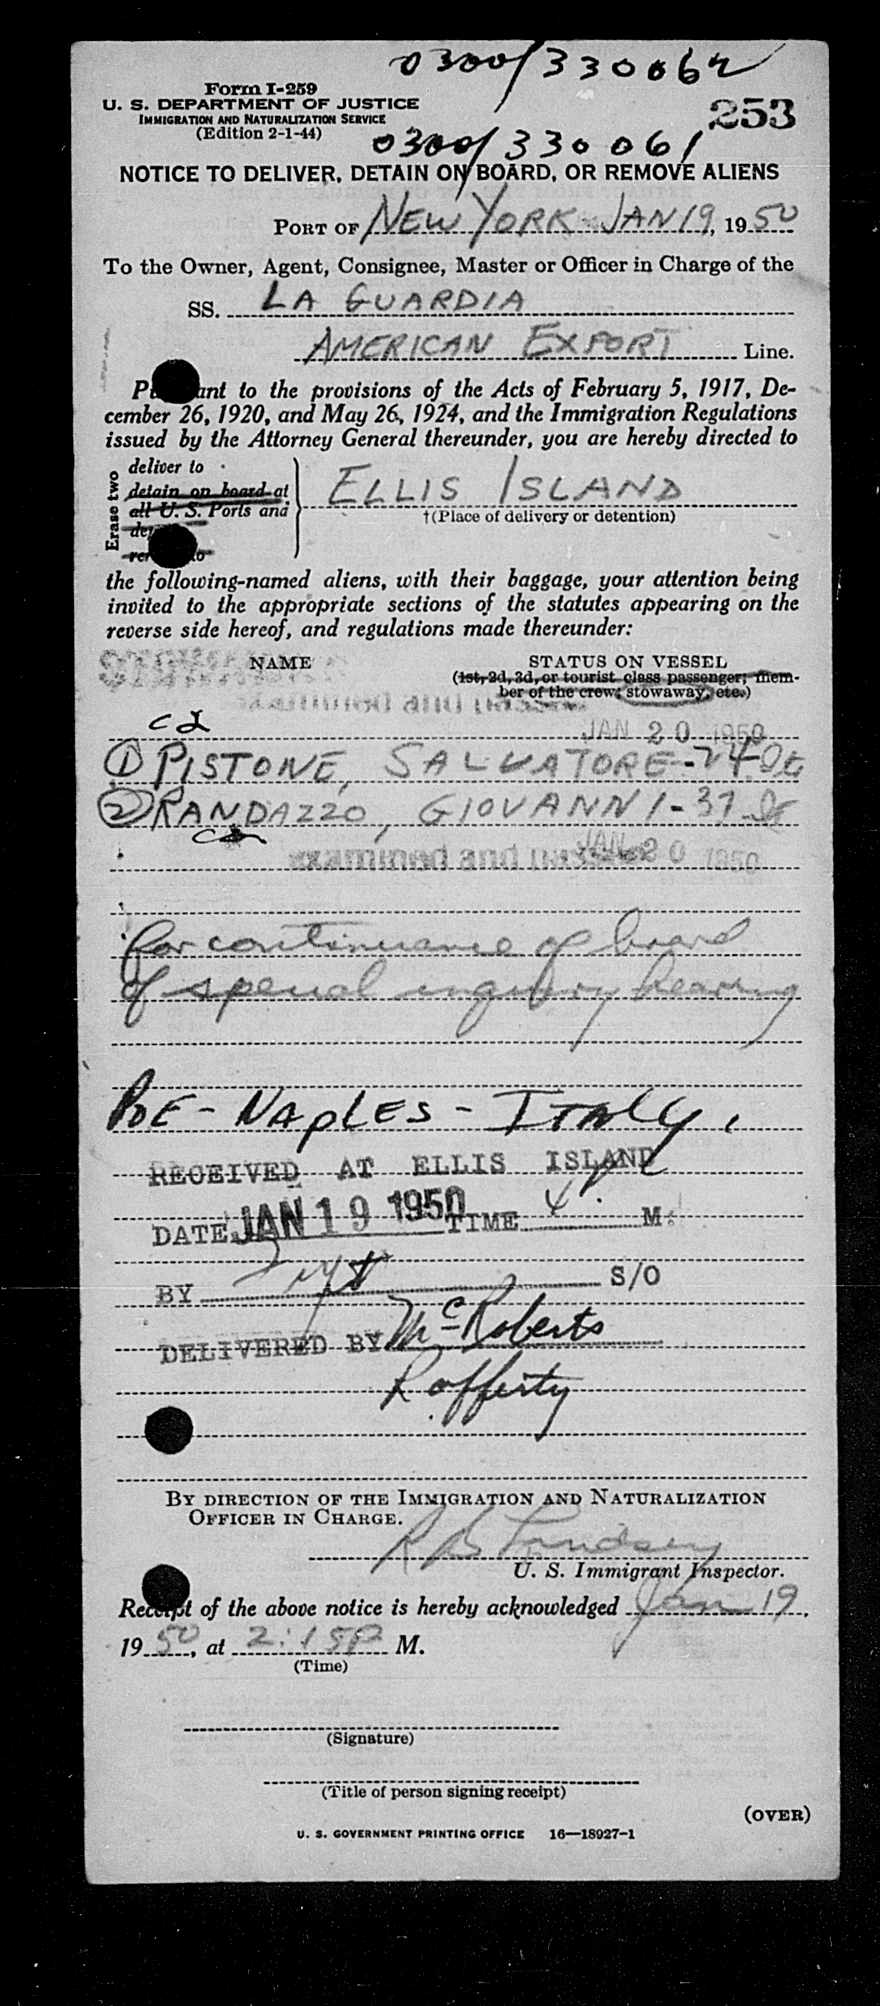 0300/330062
Form I-259
U. S. DEPARTMENT OF JUSTICE
IMMIGRATION AND NATURALIZATION SERVICE
(Edition 2-1-44)
253
0300/330061
NOTICE TO DELIVER, DETAIN ON BOARD, OR REMOVE ALIENS
PORT OF NEW YORK - JAN 19, 1950
To the Owner, Agent, Consignee, Master or Officer in Charge of the
SS. LA GUARDIA
AMERICAN EXPORT Line.
Pursuant to the provisions of the Acts of February 5, 1917, De-
cember 26, 1920, and May 26, 1924, and the Immigration Regulations
issued by the Attorney General thereunder, you are hereby directed to
Erase two
deliver to
detain on board at
all U. S. Ports and
ELLIS ISLAND
†(Place of delivery or detention)
the following-named aliens, with their baggage, your attention being
invited to the appropriate sections of the statutes appearing on the
reverse side hereof, and regulations made thereunder:
NAME
STATUS ON VESSEL
(1st, 2d, 3d, or tourist class passenger; mem-
ber of the crew; stowaway, etc.)
JAN 20 1950
① PISTONE, SALVATORE - 24
② RANDAZZO, GIOVANNI - 37
JAN 20 1950
for continuance of board
of special inquiry hearing
POE - NAPLES - ITALY.
RECEIVED AT ELLIS ISLAND
DATE JAN 19 1950 TIME 4 P. M.
BY S/O
DELIVERED BY McRoberts
Rafferty
BY DIRECTION OF THE IMMIGRATION AND NATURALIZATION
OFFICER IN CHARGE.
R B Lindsey
U. S. Immigrant Inspector.
Receipt of the above notice is hereby acknowledged Jan 19,
1950, at 2:15P M.
(Time)
(Signature)
(Title of person signing receipt)
(OVER)
U. S. GOVERNMENT PRINTING OFFICE 16—18927-1